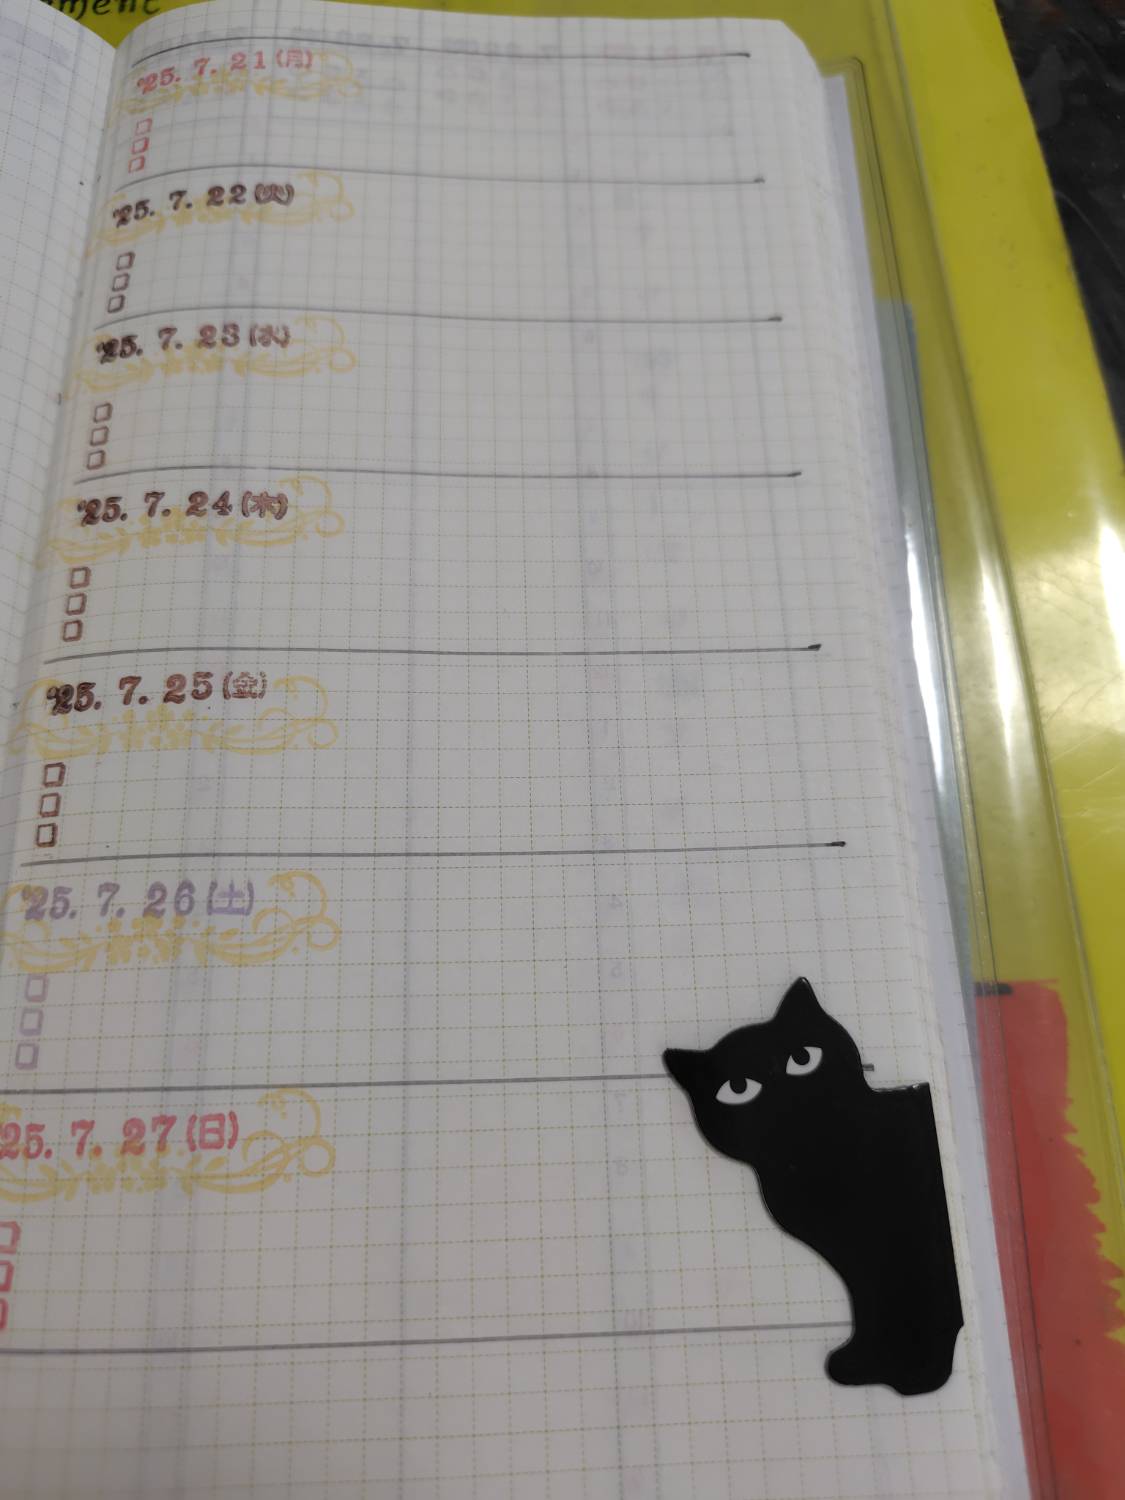 '25. 7. 21 (月)
'25. 7. 22 (火)
'25. 7. 23 (水)
'25. 7. 24 (木)
'25. 7. 25 (金)
'25. 7. 26 (土)
25. 7. 27 (日)